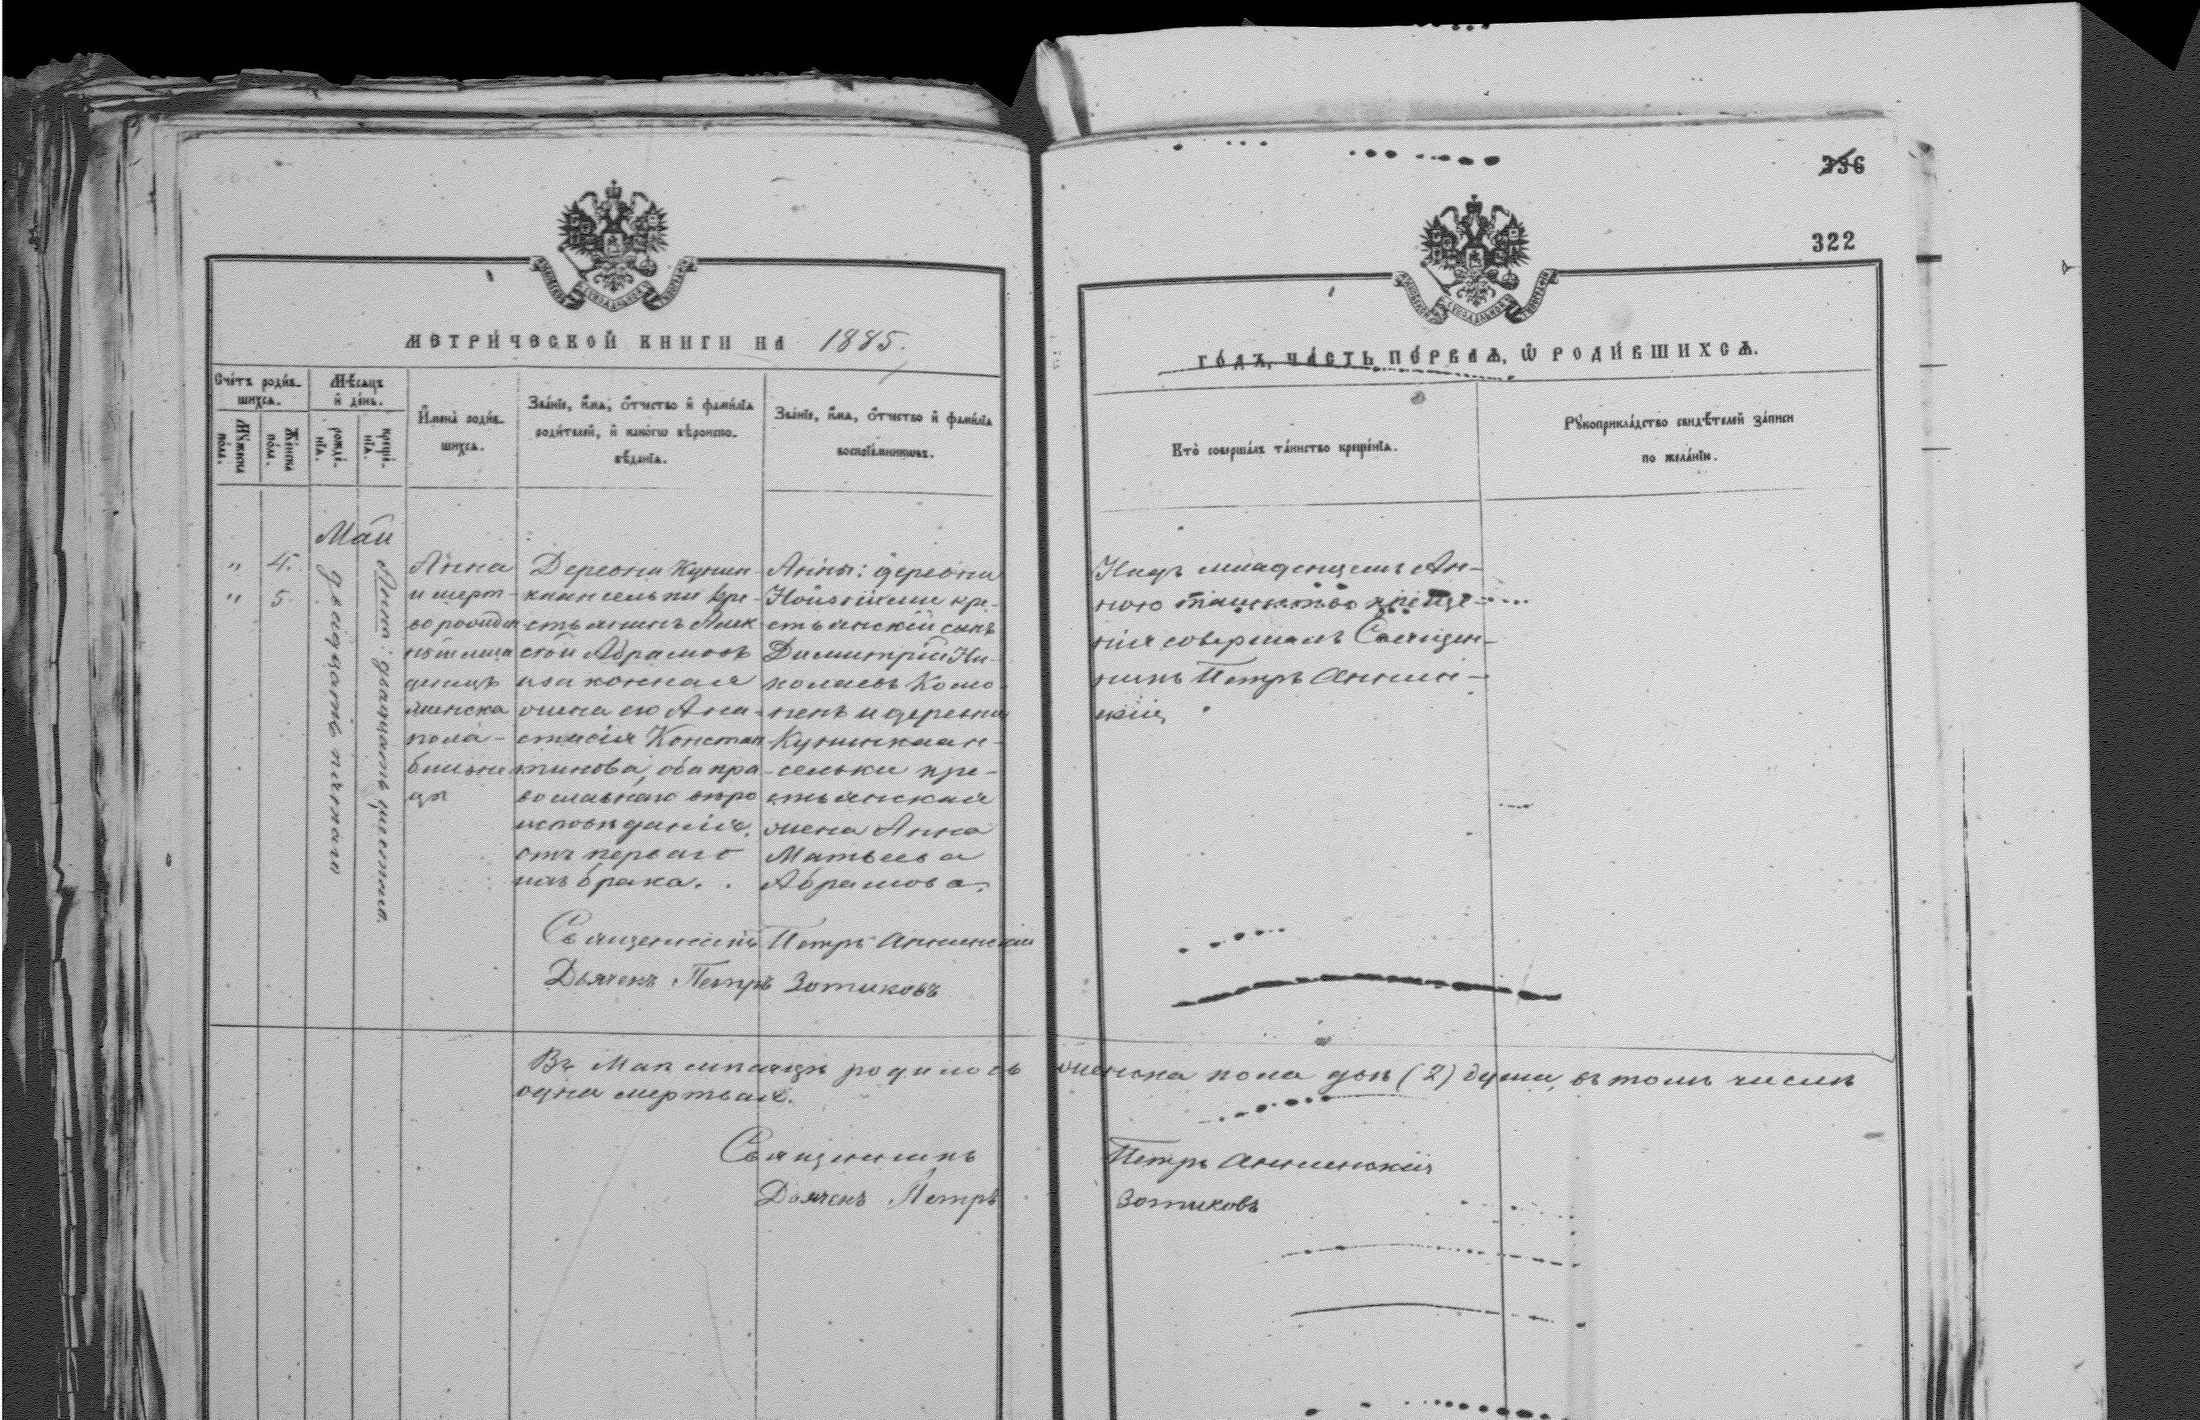 336
322
МЕТРИ́ЧЕСКОЙ КНИГИ НА 1885.
ГО́ДЪ, ЧА́СТЬ ПЕ́РВАѦ, Ѡ҆ РОДИ́ВШИХСѦ.
Сче́тъ роди́в-
шихсѧ.
Мꙋ́жеска по́ла.
Же́нска по́ла.
Мѣ́сѧцъ
и҆ де́нь.
рожде́-
нїѧ.
креще́-
нїѧ.
И҆мена̀ роди́в-
шихсѧ.
Зва́нїе, и҆́мѧ, ѻ҆́тчество и҆ фами́лїѧ
роди́телей, и҆ како́гѡ вѣроиспо-
вѣ́данїѧ.
Зва́нїе, и҆́мѧ, ѻ҆́тчество и҆ фами́лїѧ
воспрїе́мникѡвъ.
Кто̀ соверша́лъ та́инство креще́нїѧ.
Рꙋкоприкла́дство свидѣ́телей за́писи
по жела́нїю.
Май
" 4.
" 5.
двадцать пятаго
Анна: двадцать шестаго.
Анна
и мерт-
ворожден
ный мла
денецъ
женска
пола -
близне
цы
Деревни Кунин
каансельки кре-
стьянинъ Алек-
сѣй Абрамовъ
и законная
жена его Ана-
стасія Констан
тинова, оба пра-
вославнаго вѣро
исповѣданія.
отъ перваго
ихъ брака.
Анны: деревни
кре-
стьянскій сынъ
Димитрій Ни-
колаевъ
и деревни
Кунинкаан-
сельки кре-
стьянская
жена Анна
Матвеева
Абрамова.
Надъ младенцемъ Ан-
ною таинство креще-
нія совершалъ Священ-
никъ Петръ Аннин-
скій
Священникъ Петръ Аннинскій
Дьячекъ Петръ Зотиковъ
Въ Маѣ мѣсяцѣ родилось женска пола двѣ (2) души, въ томъ числѣ
одна мертвая.
Священникъ Петръ Аннинскій
Дьячекъ Петръ Зотиковъ